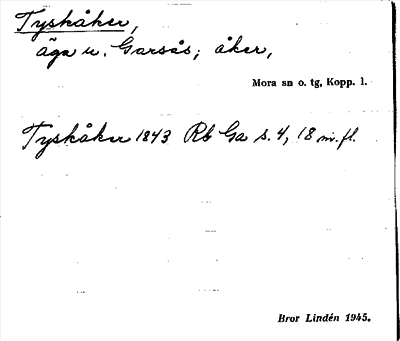 Tyskåker,
äga u. Garsås; åker,
Mora sn o. tg, Kopp. l.
Tyskåker 1843 Rb Ga s. 4, 18 m. fl.
Bror Lindén 1945.